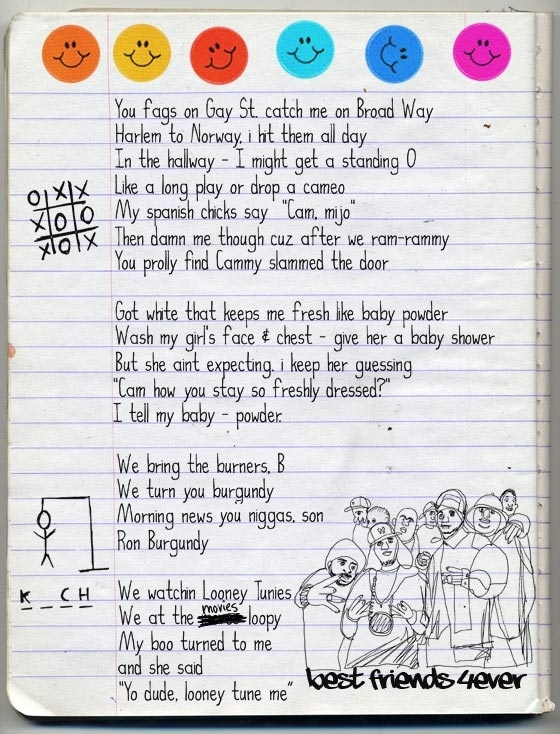 You fags on Gay St. catch me on Broad Way
Harlem to Norway, i hit them all day
In the hallway - I might get a standing O
Like a long play or drop a cameo
My spanish chicks say "Cam, mijo"
Then damn me though cuz after we ram-rammy
You prolly find Cammy slammed the door
O X X
X O O
X O X
Got white that keeps me fresh like baby powder
Wash my girl's face & chest - give her a baby shower
But she aint expecting. i keep her guessing
"Cam how you stay so freshly dressed?"
I tell my baby - powder.
We bring the burners, B
We turn you burgundy
Morning news you niggas, son
Ron Burgundy
K _ C H
We watchin Looney Tunies
We at the movies loopy
My boo turned to me
and she said
"Yo dude, looney tune me"
best friends 4ever